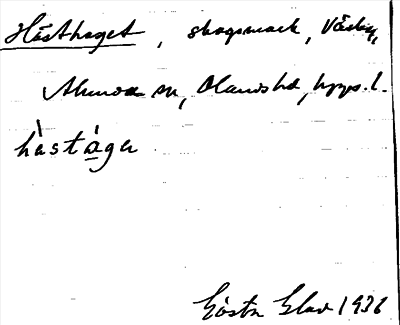 Hästhaget, skogsmark, Väsby,
Almunge sn, Olands hd, Upps. l.
hàstàga
Gösta Elov 1936